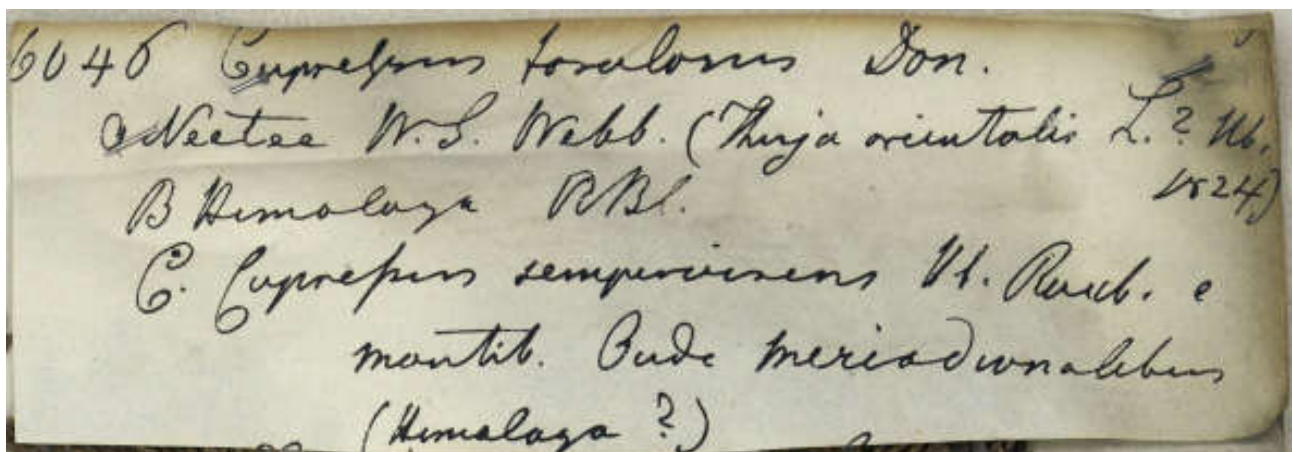 6046 Cupressus torulosus Don.
a Neetee W.S. Webb. (Thuja orientalis L.? Hb.
1824)
B Himalaya RBl.
C. Cupressus sempervirens Hb. Roxb. e
montib. Oude meriadionalibus
(Himalaya ?)